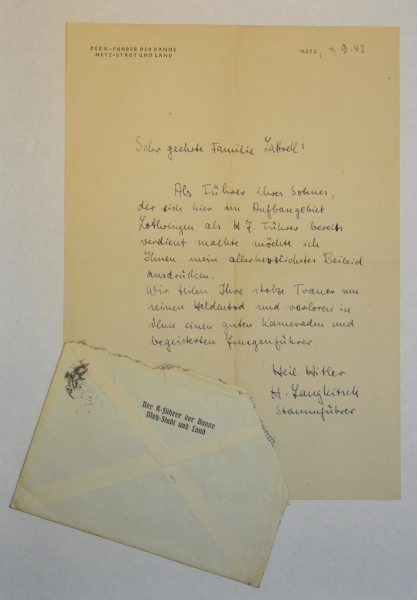 DER K.-FÜHRER DER BANNE
METZ-STADT UND LAND
METZ, 4. 9. 43
Sehr geehrte Familie
Als Führer ihres Sohnes,
der sich hier im Aufbaugebiet
Lothringen als H J. Führer bereits
verdient machte möchte ich
Ihnen mein allerherzlichstes Beileid
ausdrücken.
Wir teilen Ihre stolze Trauer um
seinen Heldentod und verloren in
ihm einen guten Kameraden und
begeisterten Jungenführer
Heil Hitler
H. Langkitsch
Stammführer
Der K-Führer der Banne
Metz-Stadt und Land